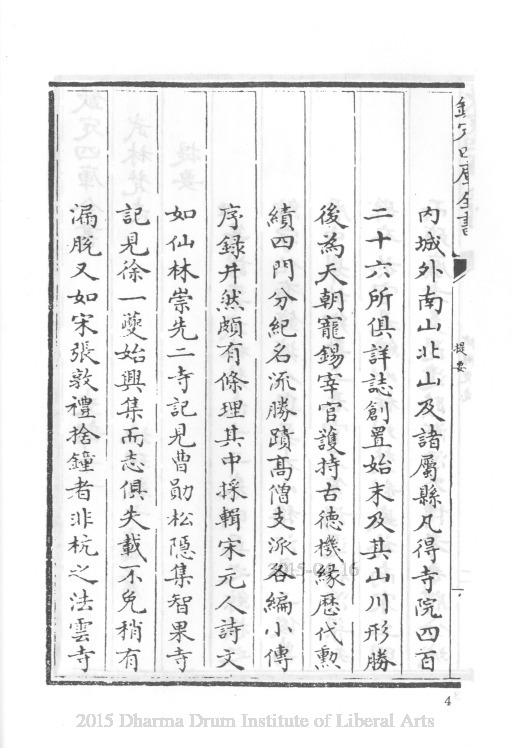 欽定四庫全書
提要
內城外南山北山及諸屬縣凡得寺院四百
二十六所俱詳誌創置始末及其山川形勝
後為天朝寵錫宰官護持古德機緣歷代勲
績四門分紀名流勝蹟髙僧支派各編小傳
序録井然頗有條理其中採輯宋元人詩文
如仙林崇先二寺記見曹勛松隱集智果寺
記見徐一夔始興集而志俱失載不免稍有
漏脫又如宋張敦禮捨鐘者非杭之法雲寺
4
2015 Dharma Drum Institute of Liberal Arts